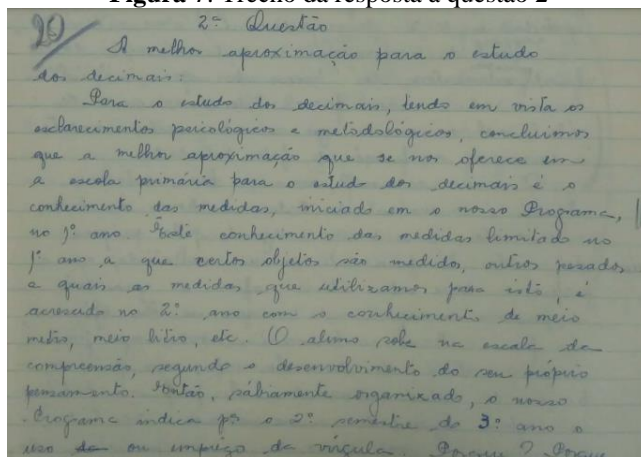 Figura 7: Trecho da resposta à questão 2
20/ 2ª Questão
A melhor aproximação para o estudo
dos decimais:
Para o estudo dos decimais, tendo em vista os
esclarecimentos psicológicos e metodológicos, concluimos
que a melhor aproximação que se nos oferece em
a escola primária para o estudo dos decimais é o
conhecimento das medidas, iniciado em o nosso Programa,
no 1º ano. Êste conhecimento das medidas limitado no
1º ano a que certos objetos são medidos, outros pesados
e quais as medidas que utilizamos para isto, é
acrescido no 2º ano com o conhecimento de meio
metro, meio litro, etc. O aluno sobe na escala da
compreensão, segundo o desenvolvimento do seu próprio
pensamento. Então, sàbiamente organizado, o nosso
Programa indica pª o 2º semestre do 3º ano o
uso ou emprêgo da vírgula. Porque? Porque